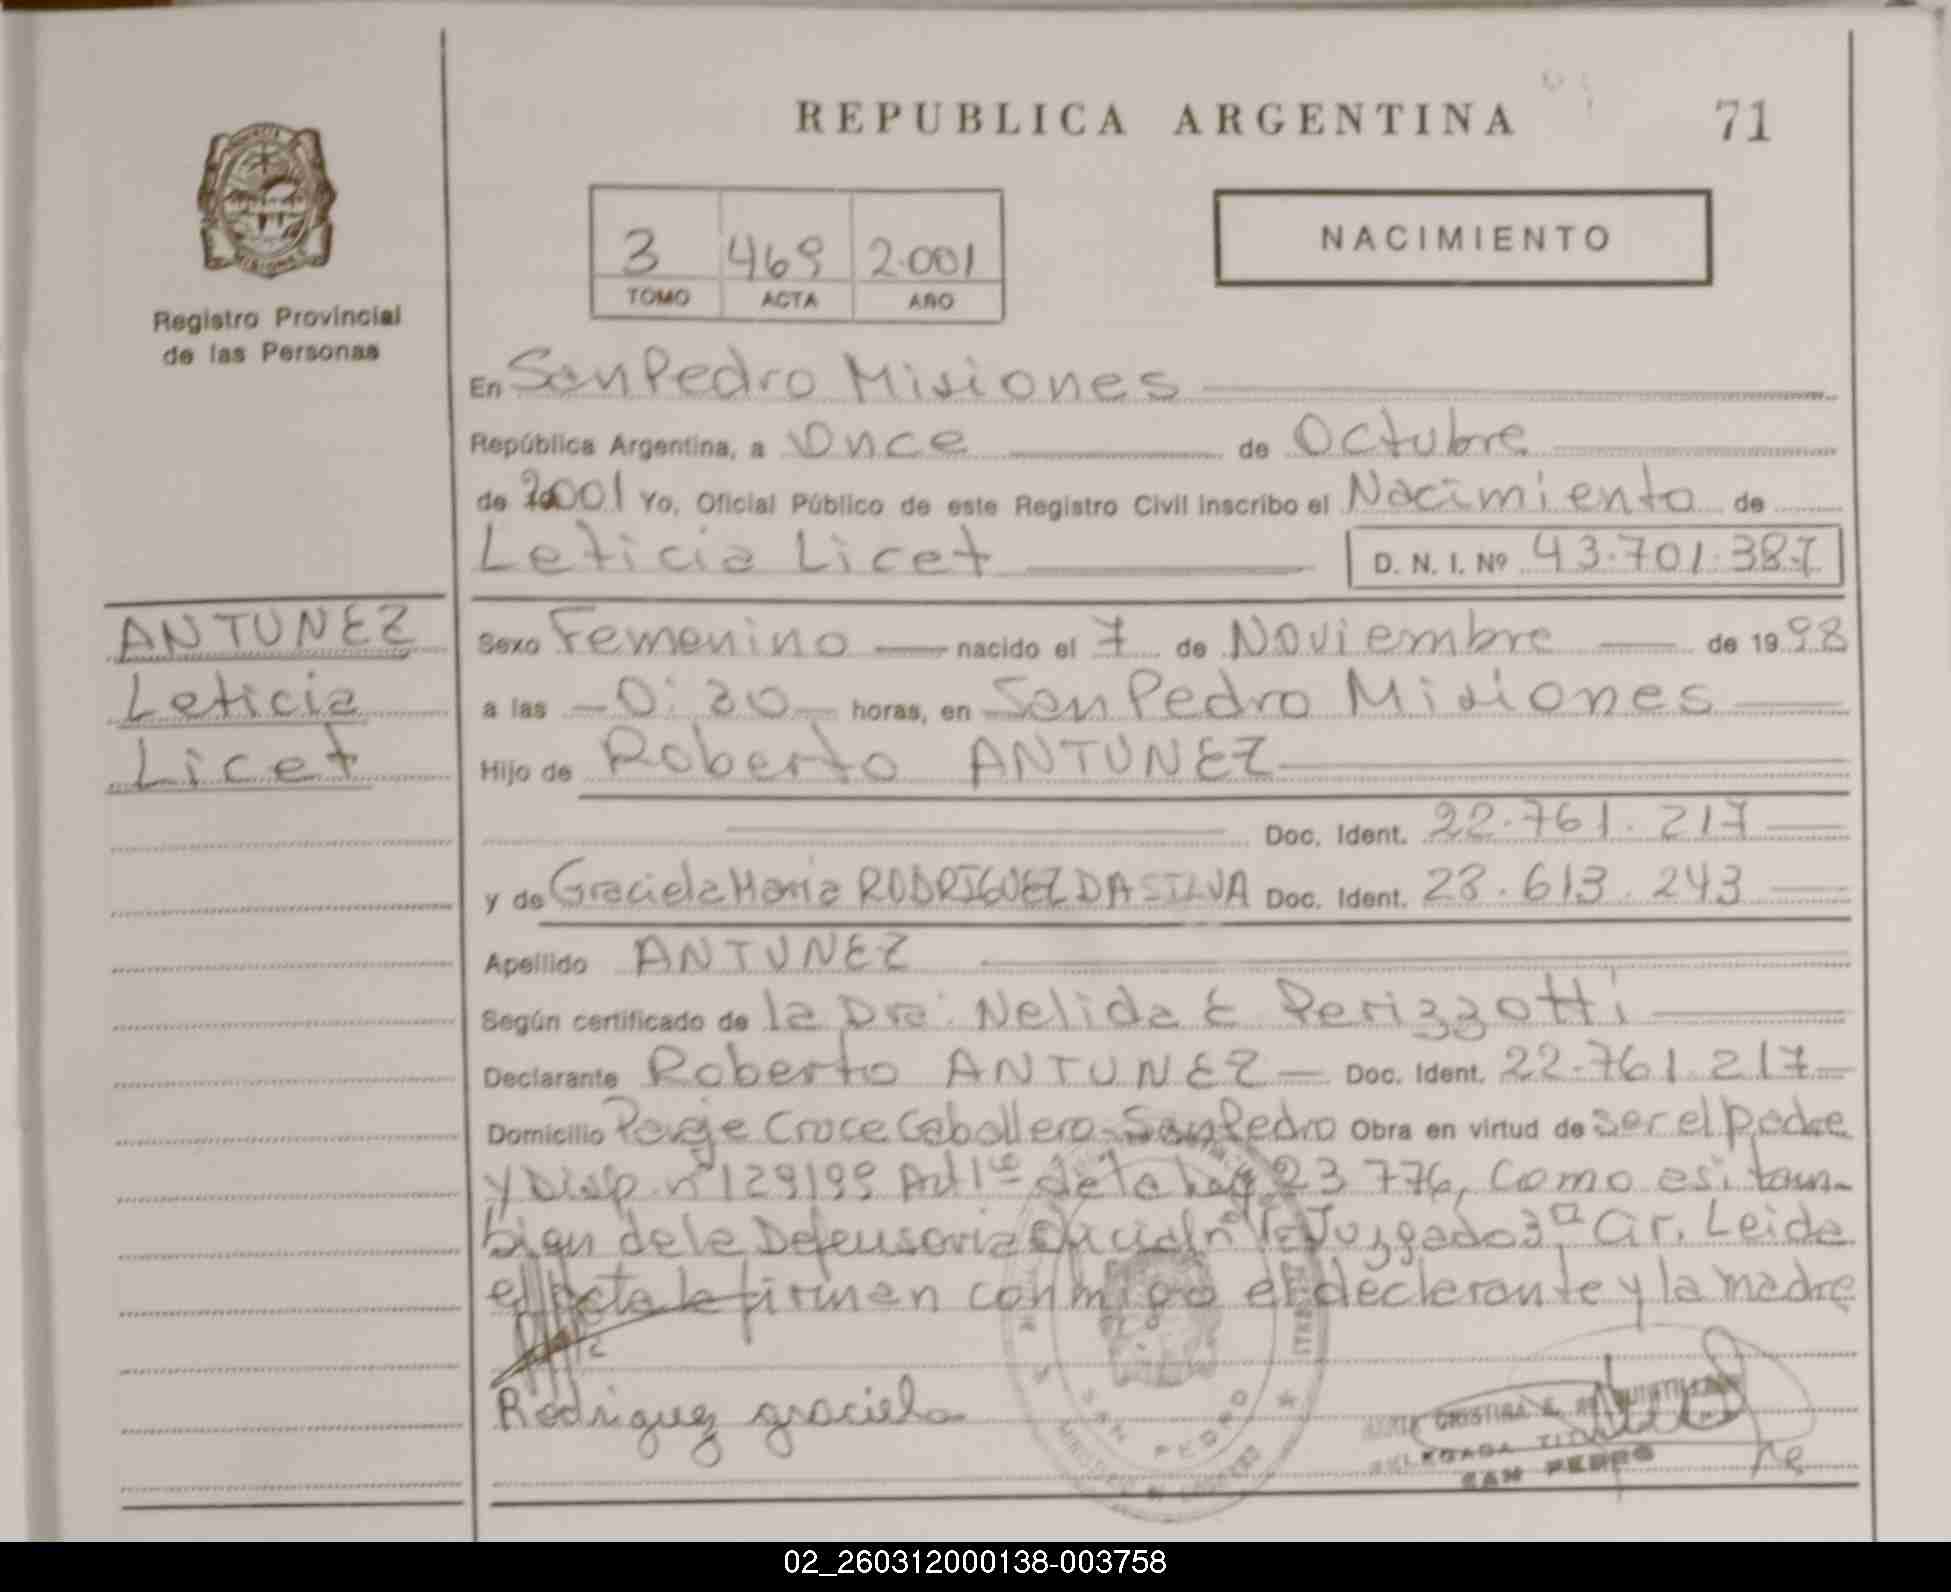 REPUBLICA ARGENTINA
71
3 469 2.001
TOMO ACTA AÑO
NACIMIENTO
Registro Provincial
de las Personas
En San Pedro Misiones
República Argentina, a Once de Octubre
de 2001 Yo, Oficial Público de este Registro Civil inscribo el Nacimiento de
Leticia Licet D. N. I. Nº 43.701.387
ANTUNEZ
Leticia
Licet
Sexo Femenino nacido el 7 de Noviembre de 1998
a las 0:30 horas, en San Pedro Misiones
Hijo de Roberto ANTUNEZ
Doc. Ident. 22.761.217
y de Graciela Maria RODRIGUEZ DA SILVA Doc. Ident. 28.613.243
Apellido ANTUNEZ
Según certificado de la Dra. Nelida E Perizzotti
Declarante Roberto ANTUNEZ Doc. Ident. 22.761.217
Domicilio Paraje Cruce Caballero-San Pedro Obra en virtud de ser el padre
y Disp. nº 129/99 Art 1º de la Ley 23 776, como asi tam-
bien de la Defensoria Oficial nº 1 Juzgado 3ª Cir. Leida
el Acta la firman conmigo el declarante y la madre
Rodriguez graciela
SAN PEDRO
CRISTINA E.
DELEGADA
SAN PEDRO
02_260312000138-003758